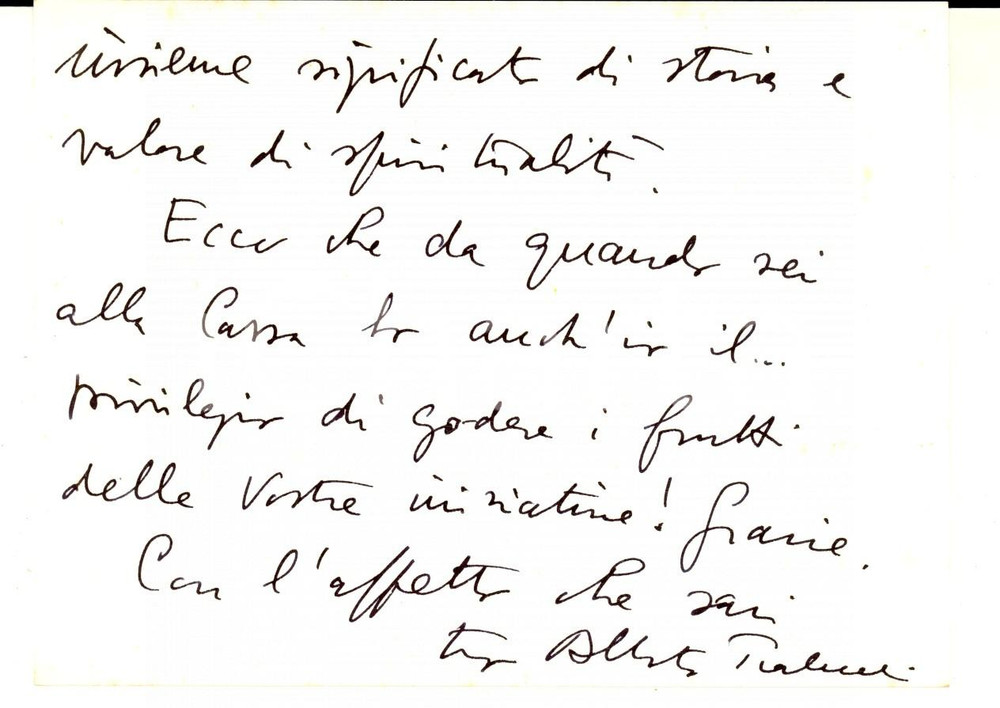 insieme significato di storia e
valore di spiritualità.
Ecco che da quando sei
alla Cassa ho anch'io il...
privilegio di godere i frutti
delle Vostre iniziative! Grazie.
Con l'affetto che sai
tuo Alberto